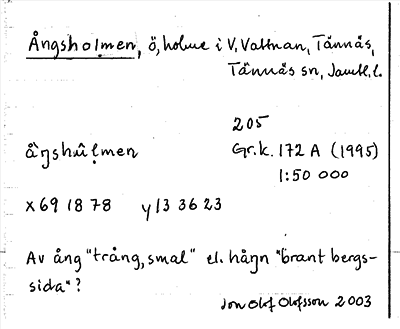 Ångsholmen, ö, holme i V. Vattnan, Tännäs,
Tännäs sn, Jämtl. l.
205
åŋshûḷmen
Gr.k. 172 A (1995)
1:50 000
x 69 18 78 y 13 36 23
Av ång "trång, smal" el. håŋn "brant bergs-
sida"?
Jon Olof Olofsson 2003